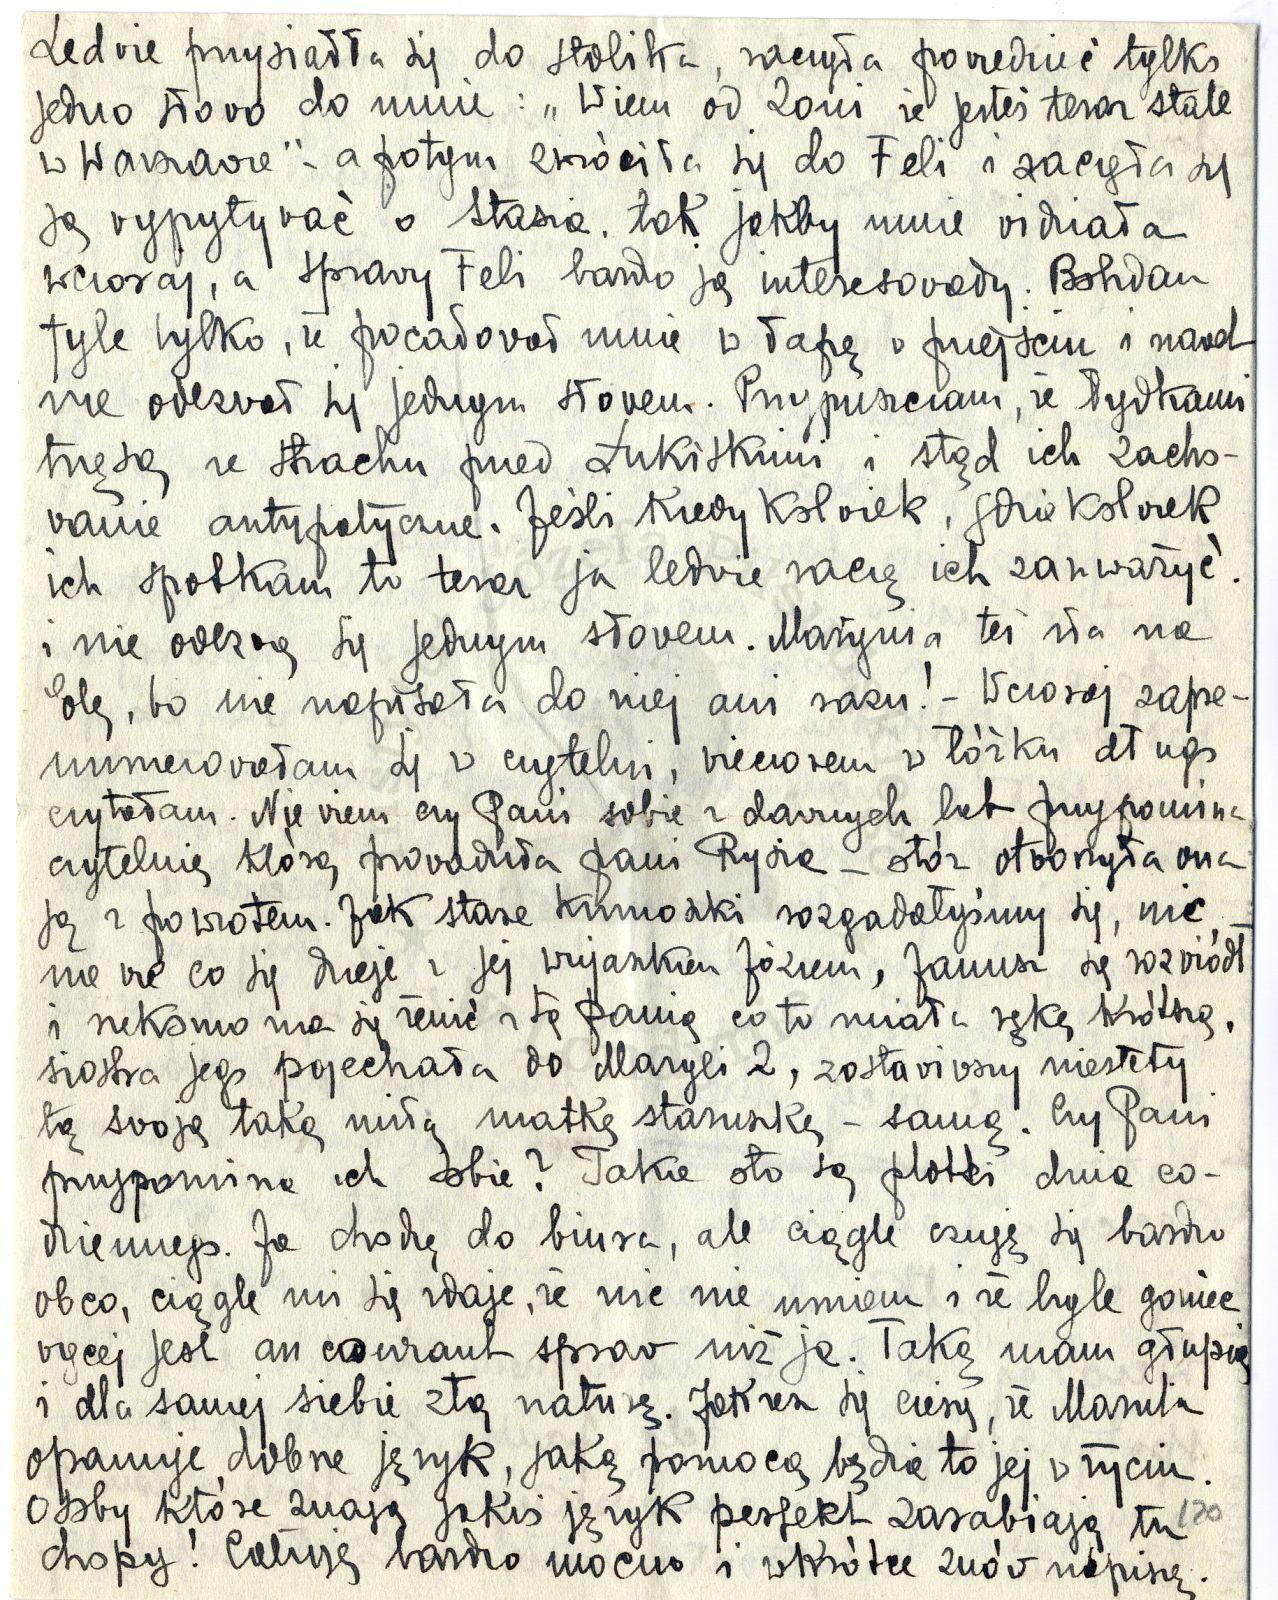 Ledwie przysiadła się do stolika, raczyła powiedzieć tylko
jedno słowo do mnie: „Wiem od Zoni że jesteś teraz stale
w Warszawie" – a potym zwróciła się do Feli i zaczęła się
ją wypytywać o Stasia, tak jakby mnie widziała
wczoraj, a sprawy Feli bardo ją interesowały. Bohdan
tyle tylko, że pocałował mnie w łapę o przejściu i nawet
nie odezwał się jednym słowem. Przypuszczam, że łydkami
trzęsą ze strachu pred Łukiskimi i stąd ich zacho-
wanie antypatyczne. Jeśli kiedykolwiek, gdziekolwiek
ich spotkam to teraz ja ledwie raczę ich zauważyć.
i nie odezwę się jednym słowem. Marynia też zła na
Lolę, bo nie napisała do niej ani razu! – Wczoraj zapre-
numerowałam się w czytelni, wieczorem w łóżku długo
czytałam. Nie wiem czy Pani sobie z dawnych lat przypomina
czytelnię którą prowadziła pani Rysia – otóż otworzyła ona
ją z powrotem. Jak stare kumoszki rozgadałyśmy się, nic
nie wie co się dzieje z jej wujaszkiem Józiem, Janusz się rozwiódł
i niekomo ma się żenić z tą panią co to miała rękę krótszą,
siostra jego pojechała do Maryli Z, zostawiwszy niestety
tą swoją taką miłą matkę staruszkę – samą. Czy Pani
przypomina ich sobie? Takie oto są plotki dnia co-
dziennego. Ja chodzę do biura, ale ciągle czuję się bardzo
obco, ciągle mi się zdaje, że nic nie umiem i że byle goniec
więcej jest au courant spraw niż ja. Taką mam głupią
i dla samej siebie złą naturę. Jak się cieszę, że Marula
opanuje dobrze język, jaką pomocą będzie to jej w życiu.
Osoby które znają jakiś język perfekt zarabiają tu
chopy! Całuję bardzo mocno i wkrótce znów napiszę.
120